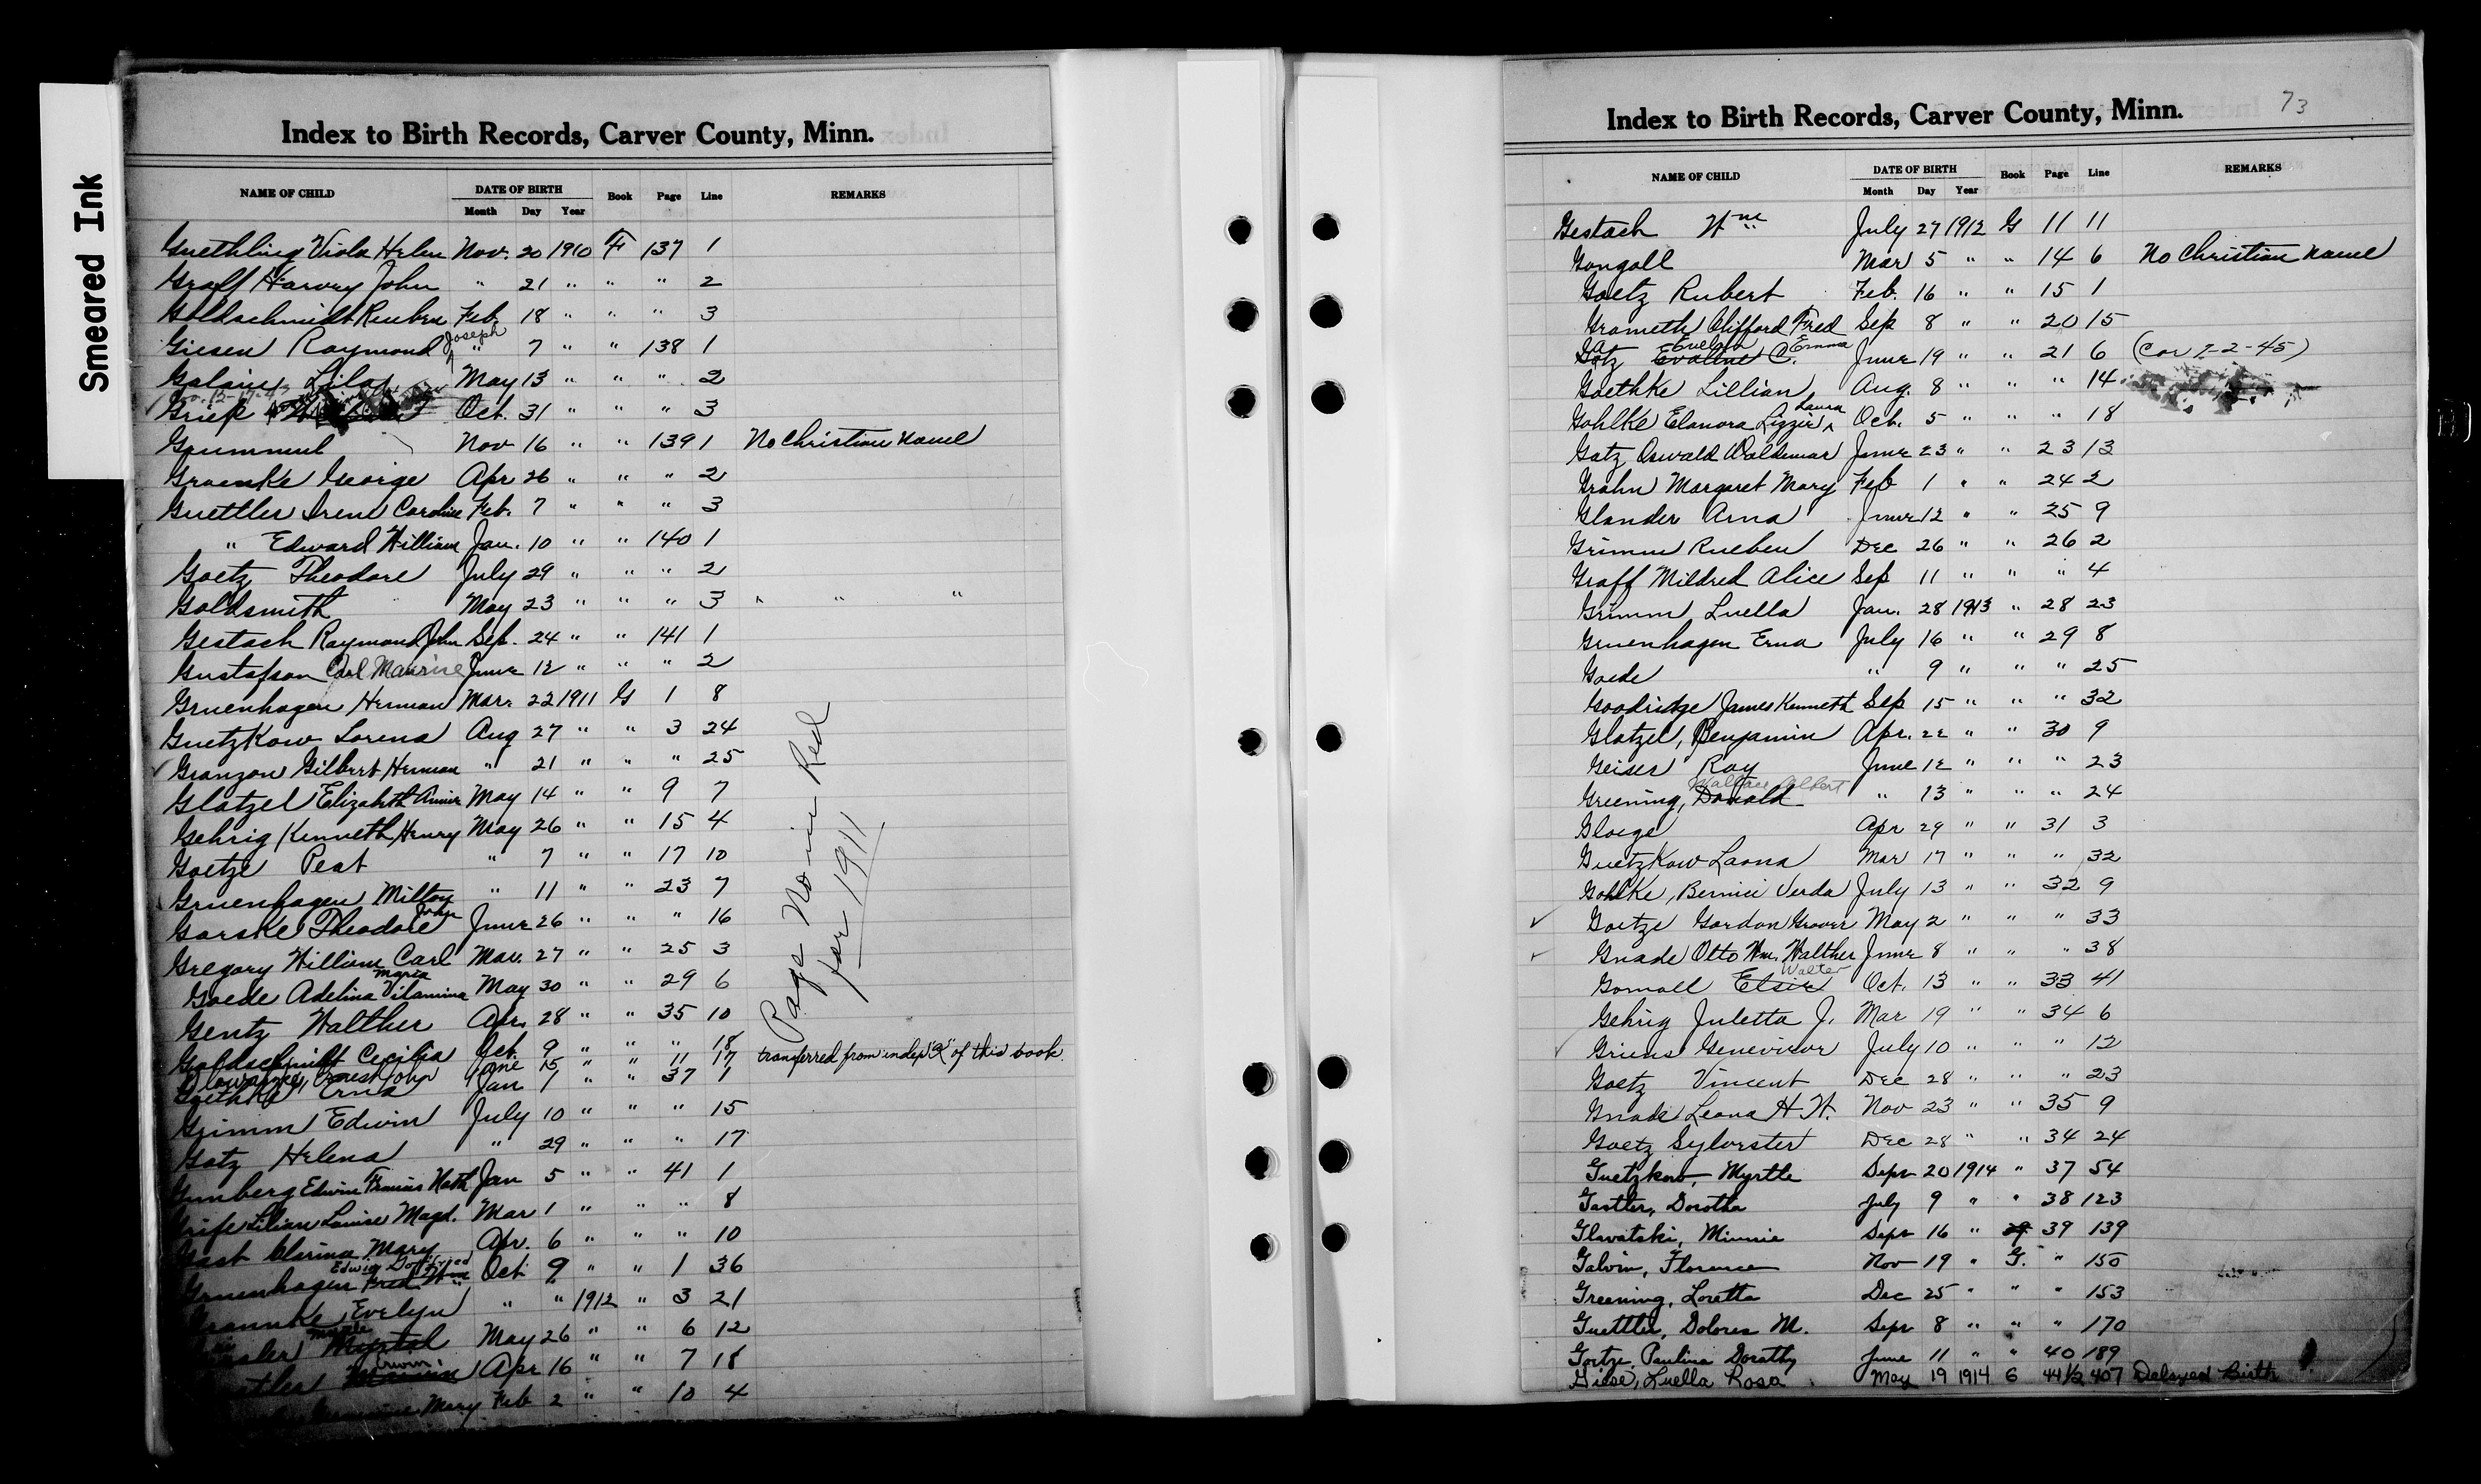 Smeared Ink
Index to Birth Records, Carver County, Minn.
NAME OF CHILD DATE OF BIRTH Book Page Line REMARKS
Month Day Year
Guethling Viola Helen Nov. 20 1910 F 137 1
Graff Harvey John " 21 " " " 2
Goldschmidt Reuben Feb. 18 " " " 3
Giesen Raymond Joseph " 7 " " 138 1
Galaine Lila May 13 " " " 2
Griep Oct. 31 " " " 3
Grummel Nov 16 " " 139 1 No Christian name
Groenke George Apr 26 " " " 2
Guettler Irene Caroline Feb. 7 " " " 3
" Edward William Jan. 10 " " 140 1
Goetz Theodore July 29 " " " 2
Goldsmith May 23 " " " 3 " " "
Gestach Raymond John Sep. 24 " " 141 1
Gustafson Carl Maurice June 12 " " " 2
Gruenhagen Herman Mar. 22 1911 G 1 8
Guetzkow Lorena Aug 27 " " 3 24
Granzow Gilbert Herman " 21 " " " 25
Glatzel Elizabeth Annie May 14 " " 9 7
Gehrig Kenneth Henry May 26 " " 15 4
Goetze Peat " 7 " " 17 10
Gruenhagen Milton " 11 " " 23 7
Garske Theodore John June 26 " " " 16
Gregory William Carl Mar. 27 " " 25 3
Goede Adelina Maria Vilamina May 30 " " 29 6
Gentz Walther Apr. 28 " " 35 10
Goldschmidt Cecilia Oct. 9 " " " 18
Ernest John June 15 " " 11 17 transferred from index "R" of this book.
Goethke Erna Jan 1 " " 37 1
Grimm Edwin July 10 " " " 15
Gatz Helena " 29 " " " 17
Gunberg Edwin Francis Nath Jan 5 " " 41 1
Grife Lilian Louise Magd. Mar 1 " " " 8
Gast Clarina Mary Apr. 6 " " " 10
Edwin Gottfried
Gruenhagen Fred Wm Oct 9 " " 1 36
Groenke Evelyn " " 1912 " 3 21
Myrtle
Myrtal May 26 " " 6 12
Irwin
Apr 16 " " 7 18
Mary Feb 2 " " 10 4
Page No in Red
for 1911
73
Index to Birth Records, Carver County, Minn.
NAME OF CHILD DATE OF BIRTH Book Page Line REMARKS
Month Day Year
Gestach Wm July 27 1912 G 11 11
Gongoll Mar 5 " " 14 6 No Christian name
Goetz Rubert Feb. 16 " " 15 1
Grameth Clifford Fred Sep 8 " " 20 15
Evelyn Emma
Gatz Evaline C. June 19 " " 21 6 (Cor 7-2-45)
Goethke Lillian Aug. 8 " " " 14
Gohlke Elanora Lizzie Laura Oct. 5 " " " 18
Gatz Oswald Waldemar June 23 " " 23 13
Grahn Margaret Mary Feb 1 " " 24 2
Glander Arna June 12 " " 25 9
Grimm Rueben Dec 26 " " 26 2
Graff Mildred Alice Sep 11 " " " 4
Grimm Luella Jan. 28 1913 " 28 23
Gruenhagen Erna July 16 " " 29 8
Goede " 9 " " " 25
Goodridge James Kenneth Sep 15 " " " 32
Glatzel, Benjamin Apr. 22 " " 30 9
Geiser Ray June 12 " " " 23
Wallace Albert
Greening, Donald " 13 " " " 24
Gloege Apr 29 " " 31 3
Guetzkow Laona Mar 17 " " " 32
Gohlke, Bernice Verda July 13 " " 32 9
Goetze Gordon Grover May 2 " " " 33
Gnade Otto Wm. Walther June 8 " " " 38
Walter
Gomoll Elsie Oct. 13 " " 33 41
Gehrig Juletta J. Mar 19 " " 34 6
Griens Genevieve July 10 " " " 12
Goetz Vincent Dec 28 " " " 23
Gnade Leona H W. Nov 23 " " 35 9
Goetz Sylvester Dec 28 " " 34 24
Guetzkow, Myrtle Sept 20 1914 " 37 54
Gastler, Dorotha July 9 " " 38 123
Glavatski, Minnie Sept 16 " 39 139
Galvin, Florence Nov 19 " G. " 150
Greening, Loretta Dec 25 " " " 153
Guettler, Dolores M. Sept 8 " " " 170
Goetze, Paulina Dorathy June 11 " " 40 189
Giese, Luella Rosa May 19 1914 G 44½ 407 Delayed Birth